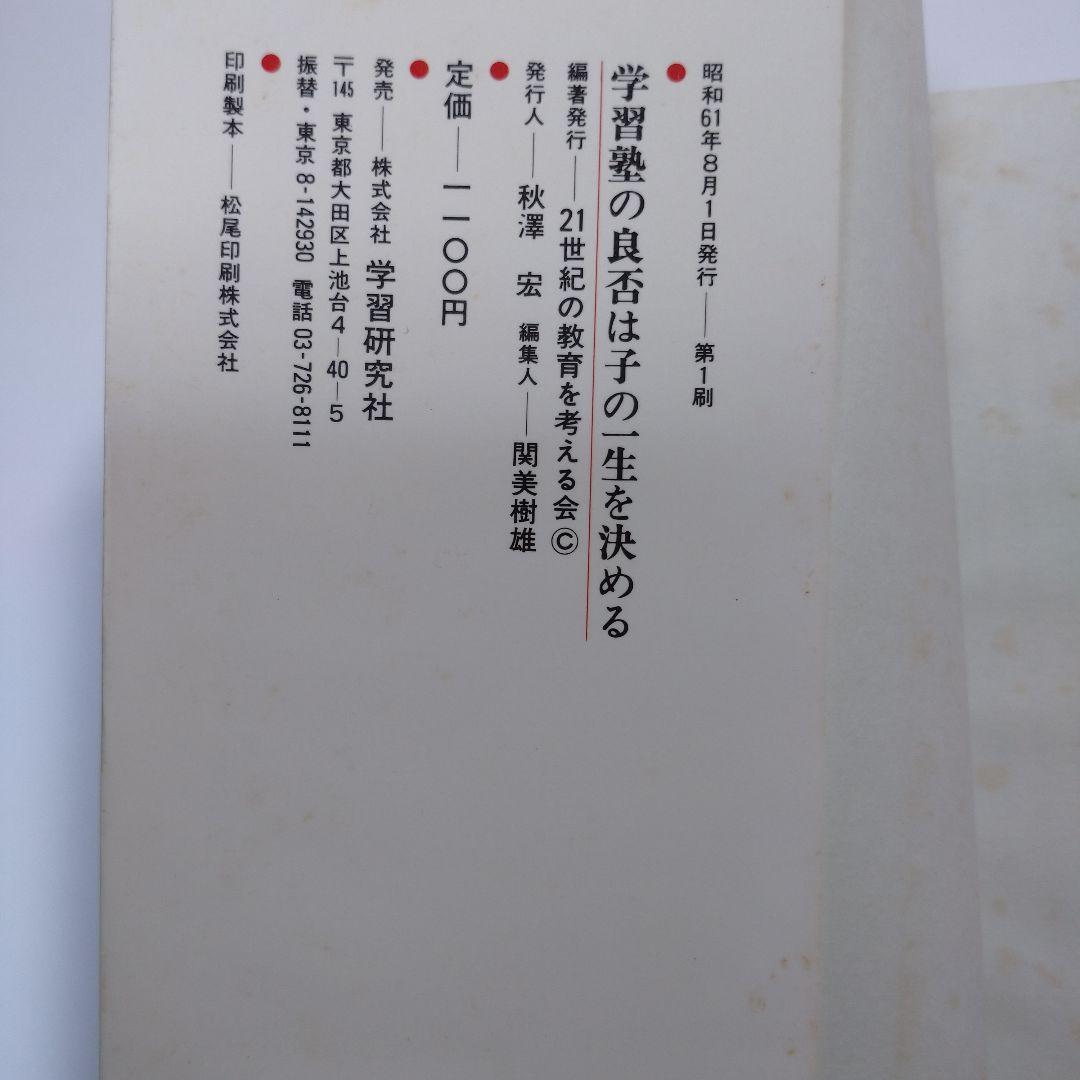 昭和61年8月1日発行――第1刷
学習塾の良否は子の一生を決める
編著発行――21世紀の教育を考える会©
発行人――秋澤 宏 編集人――関美樹雄
定価――一一〇〇円
発売――株式会社 学習研究社
〒145 東京都大田区上池台4―40―5
振替・東京8-142930 電話03-726-8111
印刷製本――松尾印刷株式会社